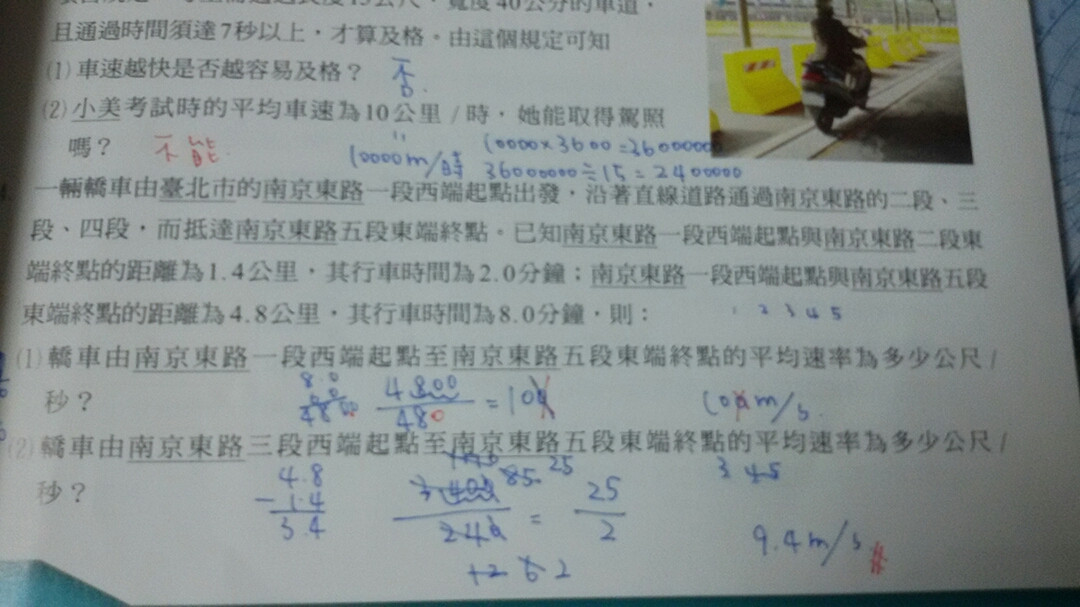 項目規定,考生需通過長度15公尺、寬度40公分的車道,
且通過時間須達7秒以上,才算及格。由這個規定可知
(1)車速越快是否越容易及格? 否
(2)小美考試時的平均車速為10公里/時,她能取得駕照
嗎? 不能.
10000m/時
10000×3600=36000000
36000000÷15=2400000
一輛轎車由臺北市的南京東路一段西端起點出發,沿著直線道路通過南京東路的二段、三
段、四段,而抵達南京東路五段東端終點。已知南京東路一段西端起點與南京東路二段東
端終點的距離為1.4公里,其行車時間為2.0分鐘;南京東路一段西端起點與南京東路五段
東端終點的距離為4.8公里,其行車時間為8.0分鐘,則:
1 2 3 4 5
(1)轎車由南京東路一段西端起點至南京東路五段東端終點的平均速率為多少公尺/
秒?
4800/480=10
10m/s.
(2)轎車由南京東路三段西端起點至南京東路五段東端終點的平均速率為多少公尺/
秒?
3 4 5
4.8
-1.4
3.4
= 25/2
9.4m/s